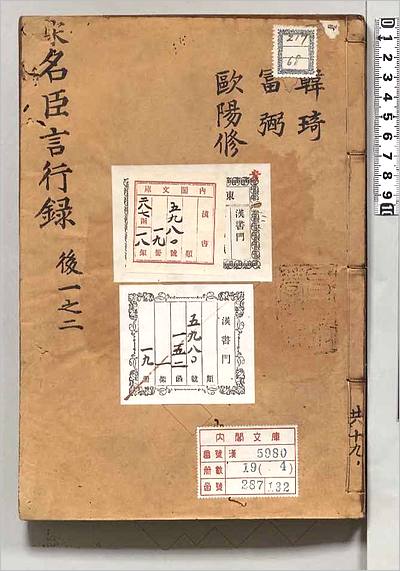 韓琦
富弼
歐陽修
宋名臣言行録 後一之二
217
68
內閣文庫
漢書
五九八〇
一九
二八七
一八
類 號 冊 架
東
漢書門
漢書門
五九八〇
一五二
一九
類 號 函 架 冊
內閣文庫
番號 漢 5980
冊數 19(4)
函號 287 132
共十九
0 1 2 3 4 5 6 7 8 9 10